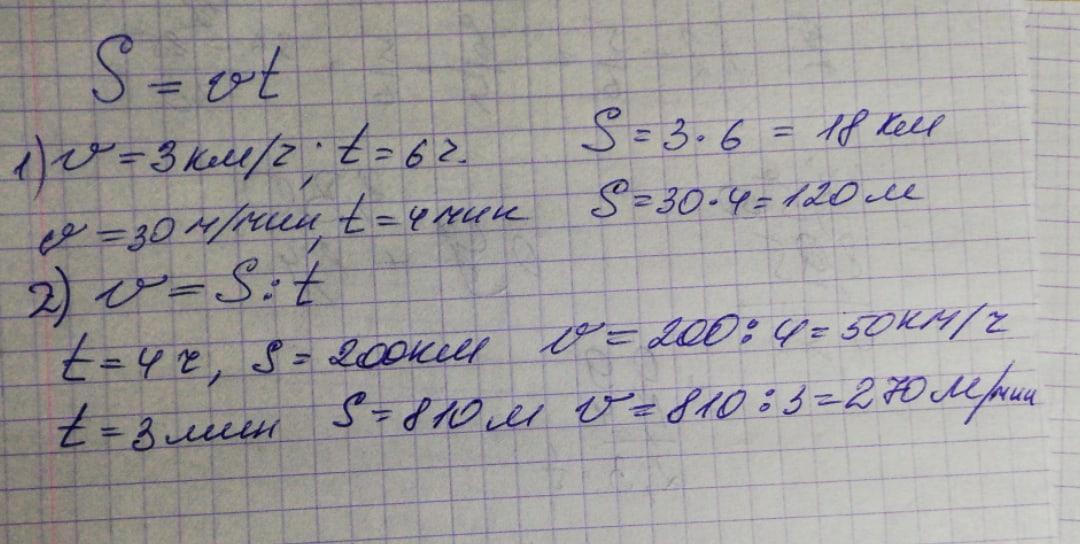 S = vt
1) v = 3 км/ч; t = 6 ч. S = 3 · 6 = 18 км
v = 30 м/мин, t = 4 мин S = 30 · 4 = 120 м
2) v = S : t
t = 4 ч, S = 200 км v = 200 : 4 = 50 км/ч
t = 3 мин S = 810 м v = 810 : 3 = 270 м/мин